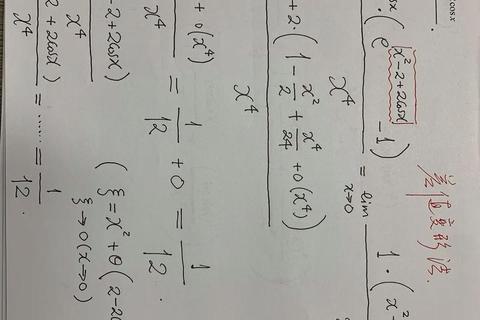 cosx
差值变形法.
· (e^{x²-2+2cosx} -1) / x⁴ = lim_{x→0} 1·(x²-
+2·(1 - x²/2 + x⁴/24 + o(x⁴)) / x⁴
+ o(x⁴) / x⁴ = 1/12 + 0 = 1/12.
-2+2cosx) / x⁴ (ξ = x² + θ(2-2
ξ→0 (x→0)
2+2cosx) / x⁴ = ...... = 1/12.